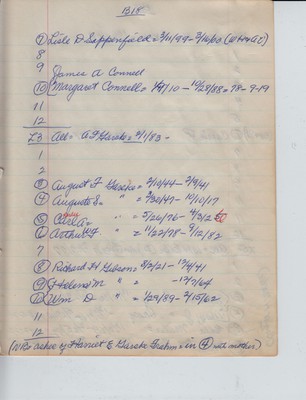 B18
⑦ Lisle D Sippenfield = 3/11/99 - 2/16/63 (WWI & II)
8
9
James A Connell
⑩ Margaret Connell = 1/9/10 - 10/28/88 = 78-9-19
11
12
L3 All = A F Gareke = 9/1/83 -
1
2
③ August F Gareke = 2/10/44 - 2/9/41
④ Auguste S = " = 7/30/47 - 10/10/17
⑤ A = " = 5/26/76 - 4/2/250
⑥ Arthur W F " = 11/22/78 - 9/12/82
7
⑧ Richard H Gibson = 8/2/21 - 12/4/41
⑨ Helena M " = - 12/7/64
⑩ Wm D " = 1/29/89 - 2/15/62
11
12
(No ashes of Harriet E Gareke Grahm = in ④ with mother)